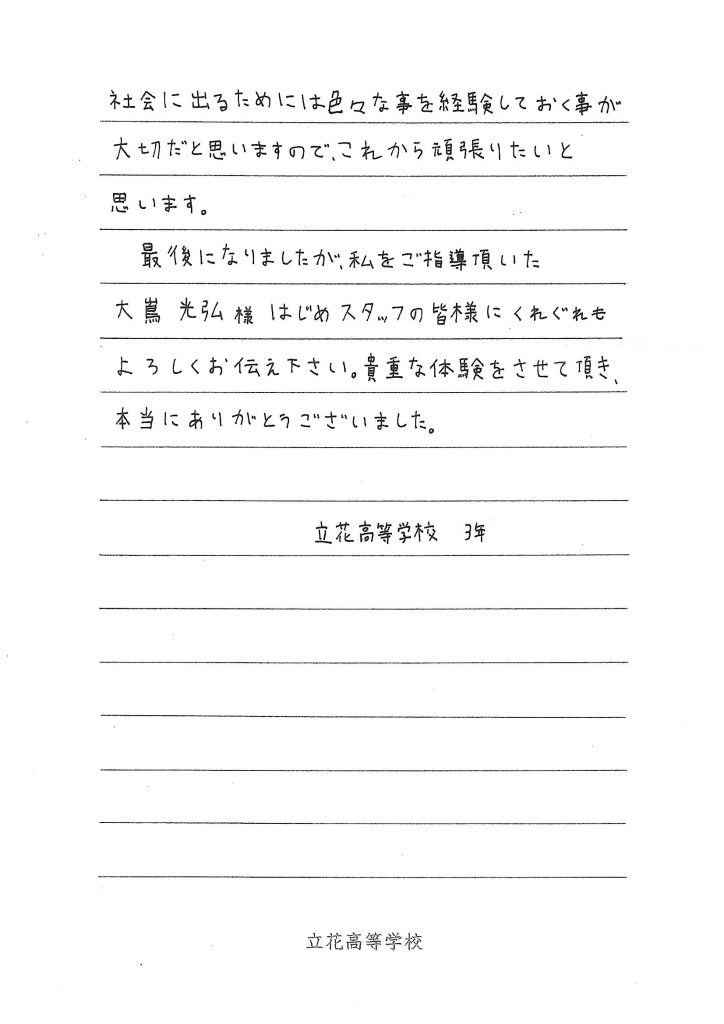 社会に出るためには色々な事を経験しておく事が
大切だと思いますので、これから頑張りたいと
思います。
最後になりましたが、私をご指導頂いた
大嶌 光弘様 はじめスタッフの皆様にくれぐれも
よろしくお伝え下さい。貴重な体験をさせて頂き、
本当にありがとうございました。
立花高等学校 3年
立花高等学校